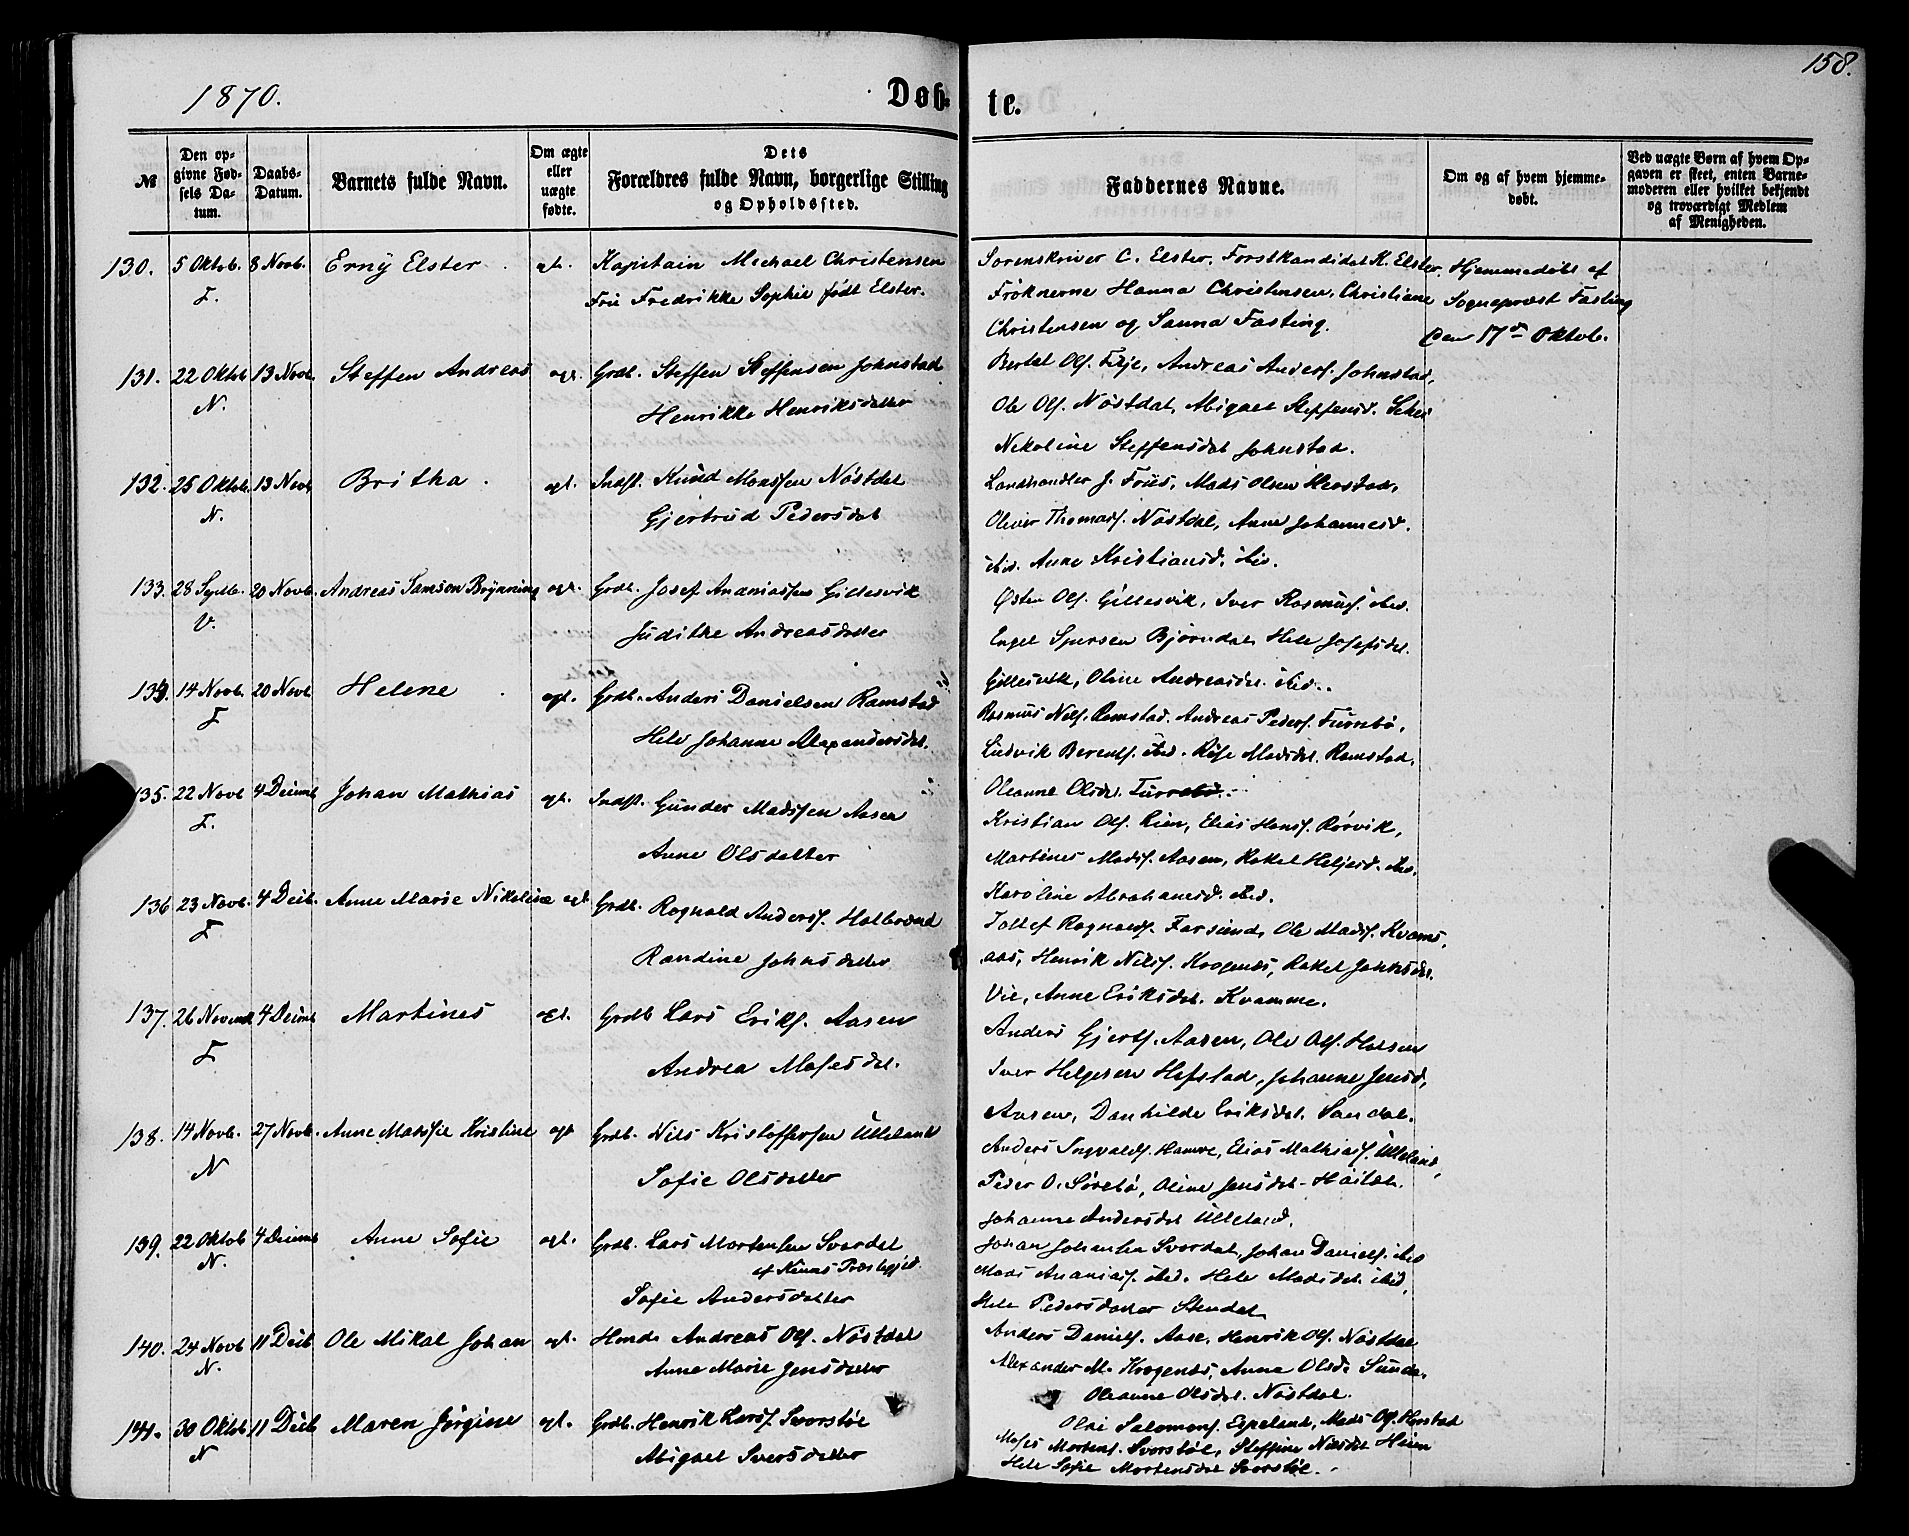 158.
1870.
Døb-te.
№
Den opgivne Fødsels Datum.
Daabs-Datum.
Barnets fulde Navn.
Om ægte eller uægte fødte.
Dets Forældres fulde Navn, borgerlige Stilling og Opholdssted.
Faddernes Navne.
Om og af hvem hjemmedøbt.
Ved uægte Børn af hvem Opgaven er skeet, enten Barnemoderen eller hvilket bekjendt og troværdigt Medlem af Menigheden.
130. 5 Oktob. 8 Novb. Erny Elster. Kapitain Michael Christensen
F. Fru Fredrikke Sophie født Elster.
Sorenskriver C. Elster, Forstkandidat K. Elster,
Frøknerne Hanna Christensen, Christiane
Christensen og Sanna Fasting.
Hjemmedøbt af
Sognepræst Fasting
den 17de Oktob.
131. 22 Oktob 13 Novb. Steffen Andreas ægt. Grdb. Steffen Steffensen Johnstad
N. Henrikke Henriksdatter
Bertel Ols. Andreas Anders. Johnstad,
Ole Ols. Nøstdal, Abigael Steffensd.
Nikoline Steffensdat Johnstad.
132. 25 Oktob. 13 Novb Britha. ægt. Indst. Knud Monssen Nøstdal
N. Gjertrud Pedersdat
Landhandler J. Friis, Mads Olsen
Oliver Thomass. Nøstdal, Anne Johannesd.
ibid. Anne Kristiansd. ibid.
133. 28 Septb. 20 Novb. Andreas Samson Brynning ægt. Grdb. Josef Ananiassen Gillesvik
V. Judithe Andreasdatter
Østen Ols. Gillesvik, Iver Rasmus. ibid.
Engel Bjørndal, Hele Josefsdat.
Gillesvik, Oline Andreasdat. ibid.
134. 14 Novb. 20 Novb Helene. ægt. Grdb. Anders Danielsen Ramstad
F. Hele Johanne Alexandersdat.
Rasmus Nils. Ramstad. Andreas Peders. Furebø,
Ludvik Berents. ibid. Madsdat. Ramstad,
Oleanne Olsdat. Furebø.
135. 22 Novb 4 Decemb Johan Mathias ægt. Indst. Gunder Madssen Aasen
F. Anne Olsdatter
Kristian Ols. Elias Hans. Rørvik,
Martines Mads. Aasen, Rakel Heljesd. ibid.
Karoline Abrahamsd. ibid.
136 23 Novb. 4 Decb. Anne Marie Nikoline ægt Grdb. Rognald Anders. Halbrend
F. Randine Johnsdatter
Rognalds. Farsund, Ole Mads. Kvamsaas,
Henrik Nils. Krogenæs, Rakel Johnsdat.
Vie, Anne Eriksdat. Kvamme.
137. 26 Novemb 4 Decemb Martines ægt. Grdb Lars Eriks. Aasen
F. Andrea Mosesdat.
Anders Gjerts. Aasen, Ole Ols.
Iver Helgesen Hafstad, Johanne Jensd,
Aasen, Danhilde Eriksdat. Sandal.
138. 14 Novb. 27 Novb. Anne Mathie Kristine ægt Grdb. Nils Kristoffersen Utteland
N Sofie Olsdatter
Anders Ingvalds. Hamre, Elias Mathias. Utteland,
Peder O. Sørebø, Oline Jensdat.
Johanne Andersdat Utteland.
139. 22 Oktob 4 Decemb Anne Sofie ægt. Grdb. Lars Mortensen Svardal
N. af Kinns Præstegjeld.
Sofie Andersdatter
Johan Johansen Svardal, Johan Daniels. ibid
Mads Ananias. ibid. Hele Madsdat. ibid,
Hele Pedersdatter Stendal
140. 24 Novb 11 Decb Ole Mikal Johan ægt. Husmd. Andreas Ols. Nøstdal
N. Anne Marie Jensdatter
Anders Daniels. Aase, Henrik Ols. Nøstdal
Alexander M. Krogenæs, Anna Olsd. Sunde,
Oleanne Olsdat. Nøstdal.
141. 30 Oktob 11 Decb Maren Jørgine ægt. Grdb. Henrik Lars. Svorstøl
N Abigael Sversdatter
Olai Salomons. Espeland, Mads Ols.
Moses Mortens. Svorstøl, Steffine Nilsdat
Hele Sofie Mortensdat Svorstøl.